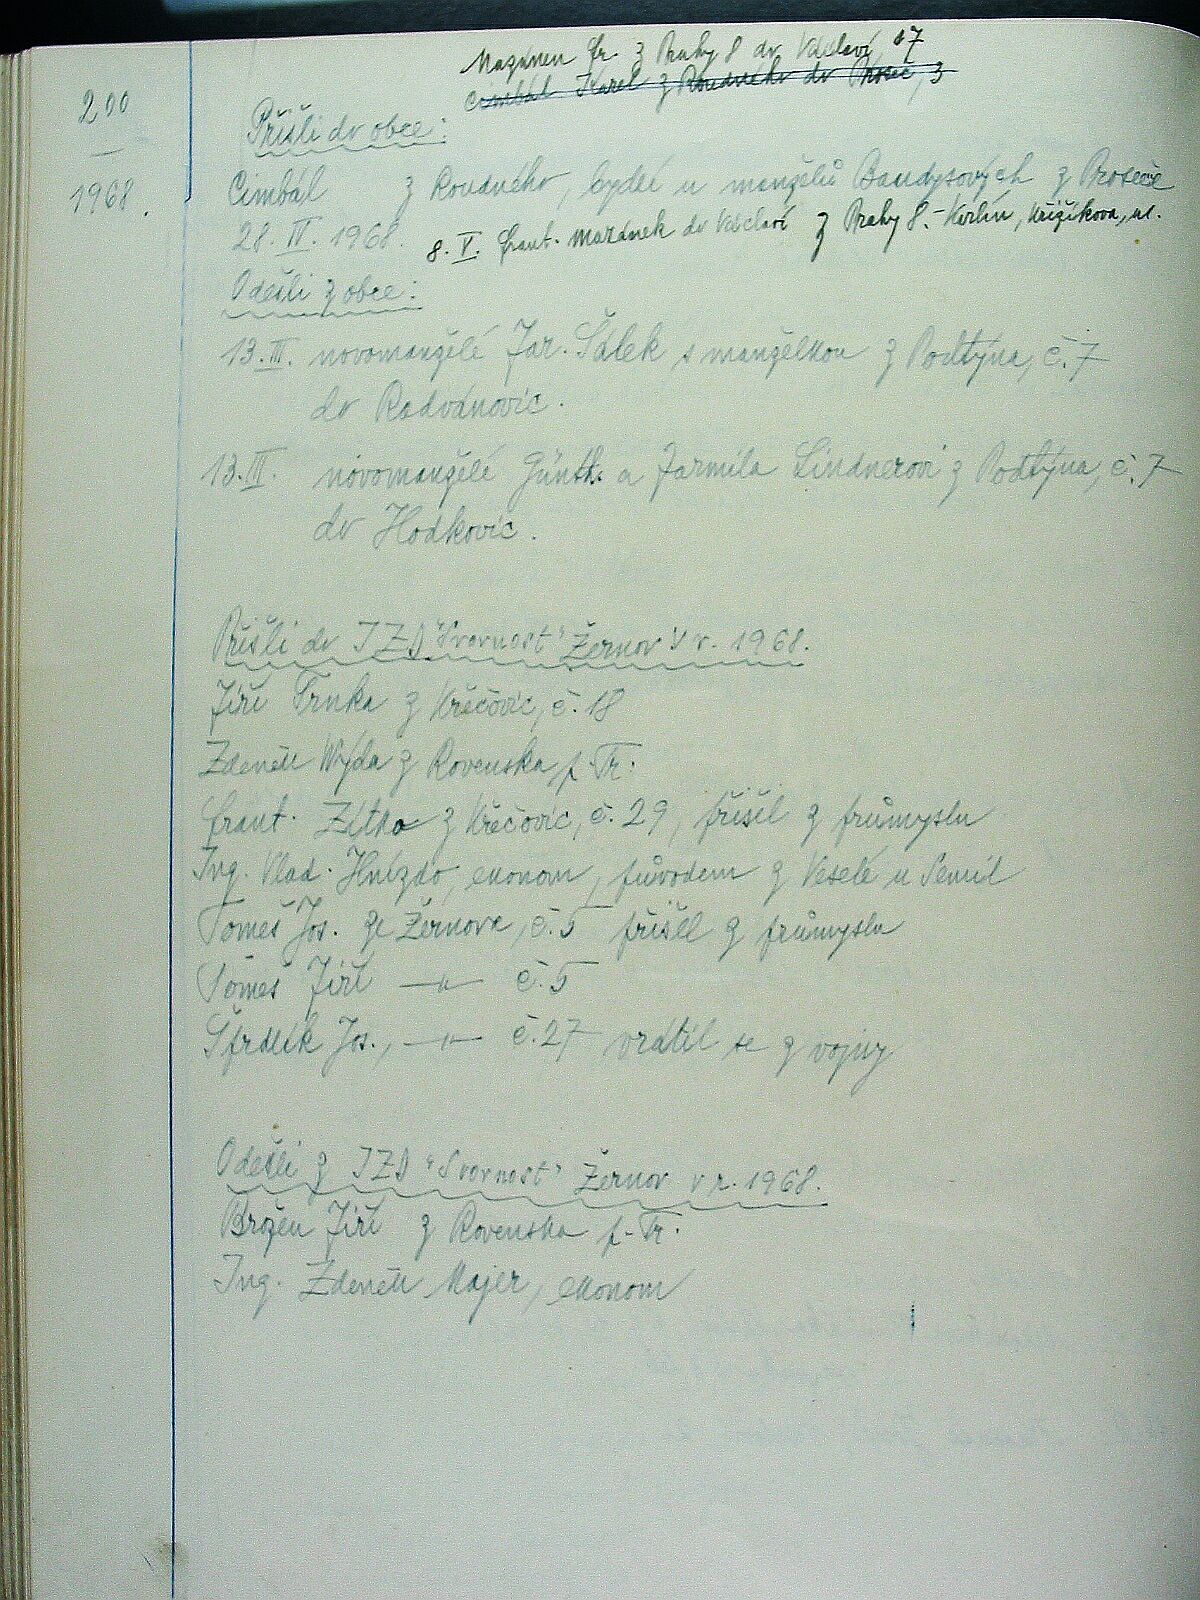 Mazánek Fr. z Prahy 8 do Václaví 17
Cimbál Karel z Roudného do Proseč, 3
200
Přišli do obce:
1968.
Cimbál z Roudného, bydlí u manželů Baudysových z Proseče
28. IV. 1968. 8. V. Frant. Mazánek do Václaví z Prahy 8.- Karlín, Křižíkova, ul.
Odešli z obce:
13. III. novomanželé Jar. Šálek s manželkou z Podtýna, č. 7
do Radvánovic.
13. III. novomanželé Günth. a Jarmila Lindnerovi z Podtýna, č. 7
do Hodkovic.
Přišli do JZD "Svornost" Žernov v r. 1968.
Jiří Trnka z Křečovic, č. 18
Zdeněk Wýda z Rovenska p. Tr.
Frant. Zítko z Křečovic, č. 29, přišel z průmyslu
Ing. Vlad. Hnízdo, ekonom, původem z Veselé u Semil
Tomeš Jos. ze Žernova, č. 5 přišel z průmyslu
Tomeš Jiří —"— č. 5
Šfrdlík Jos., —"— č. 27 vrátil se z vojny
Odešli z JZD "Svornost" Žernov v r. 1968.
Brožen Jiří z Rovenska p. Tr.
Ing. Zdeněk Majer, ekonom